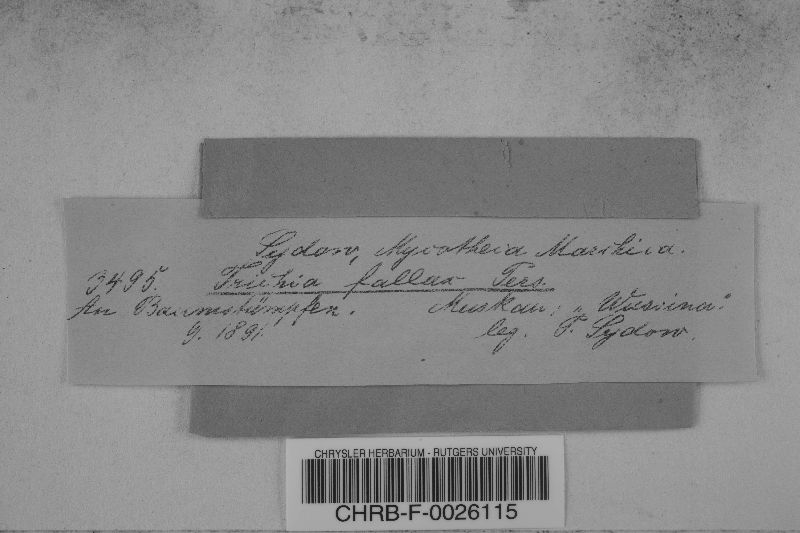 Sydow, Mycotheca Marchica.
3495. Trichia fallax Pers.
An Baumstümpfen. Muskau; „Wussina“
9. 1891. leg. P. Sydow.
CHRYSLER HERBARIUM - RUTGERS UNIVERSITY
CHRB-F-0026115